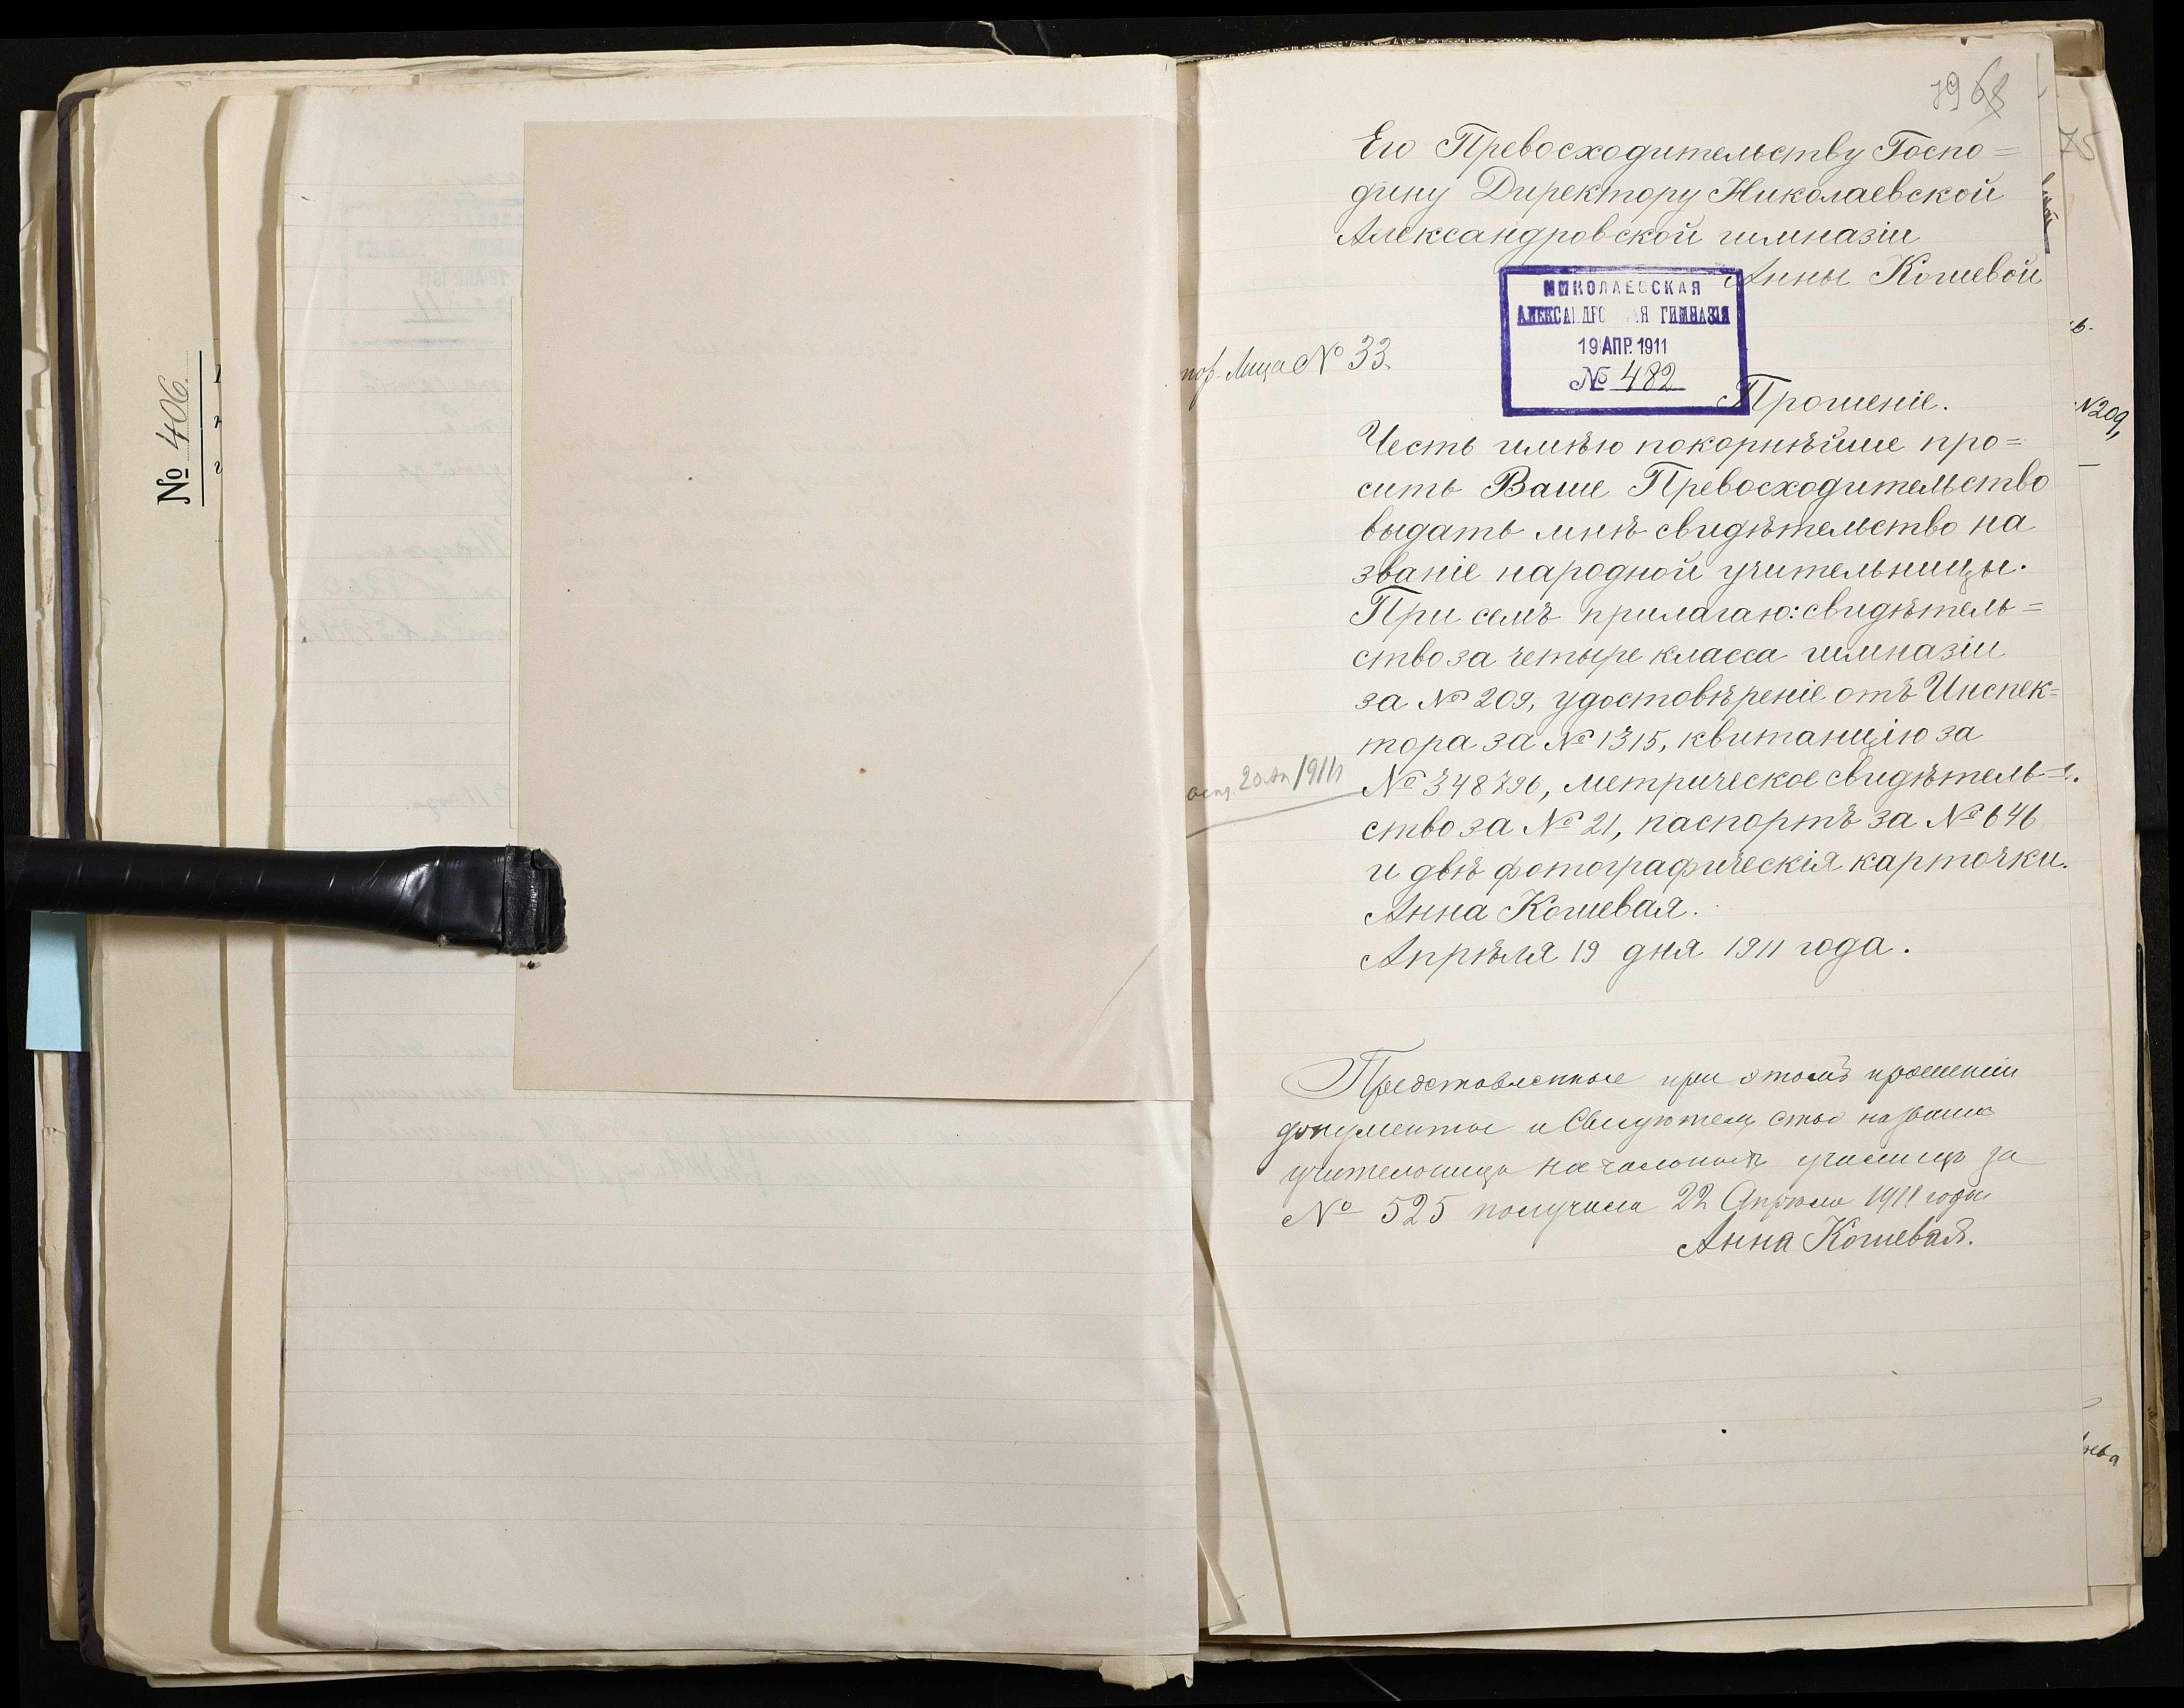 № 406.
79 68
75
Его Превосходительству Госпо=
дину Директору Николаевской
Александровской гимназіи
Анны Кошевой
НИКОЛАЕВСКАЯ
АЛЕКСАНДРО АЯ ГИМНАЗІЯ
19 АПР. 1911
№ 482
№ 33.
Прошеніе.
№ 209,
Честь имѣю покорнѣйше про=
сить Ваше Превосходительство
выдать мнѣ свидѣтельство на
званіе народной учительницы.
При семъ прилагаю: свидѣтель=
ство за четыре класса гимназіи
за № 209, удостовѣреніе отъ Инспек=
тора за № 1315, квитанцію за
№ 348796, метрическое свидѣтель=
ство за № 21, паспортъ за № 646
и двѣ фотографическія карточки.
Анна Кошевая.
Апрѣля 19 дня 1911 года.
Представленные при этомъ прошеніи
документы и Свидѣтельство на званіе
учительницы начальныхъ училищъ за
№ 525 получила 22 Апрѣля 1911 года
Анна Кошевая.